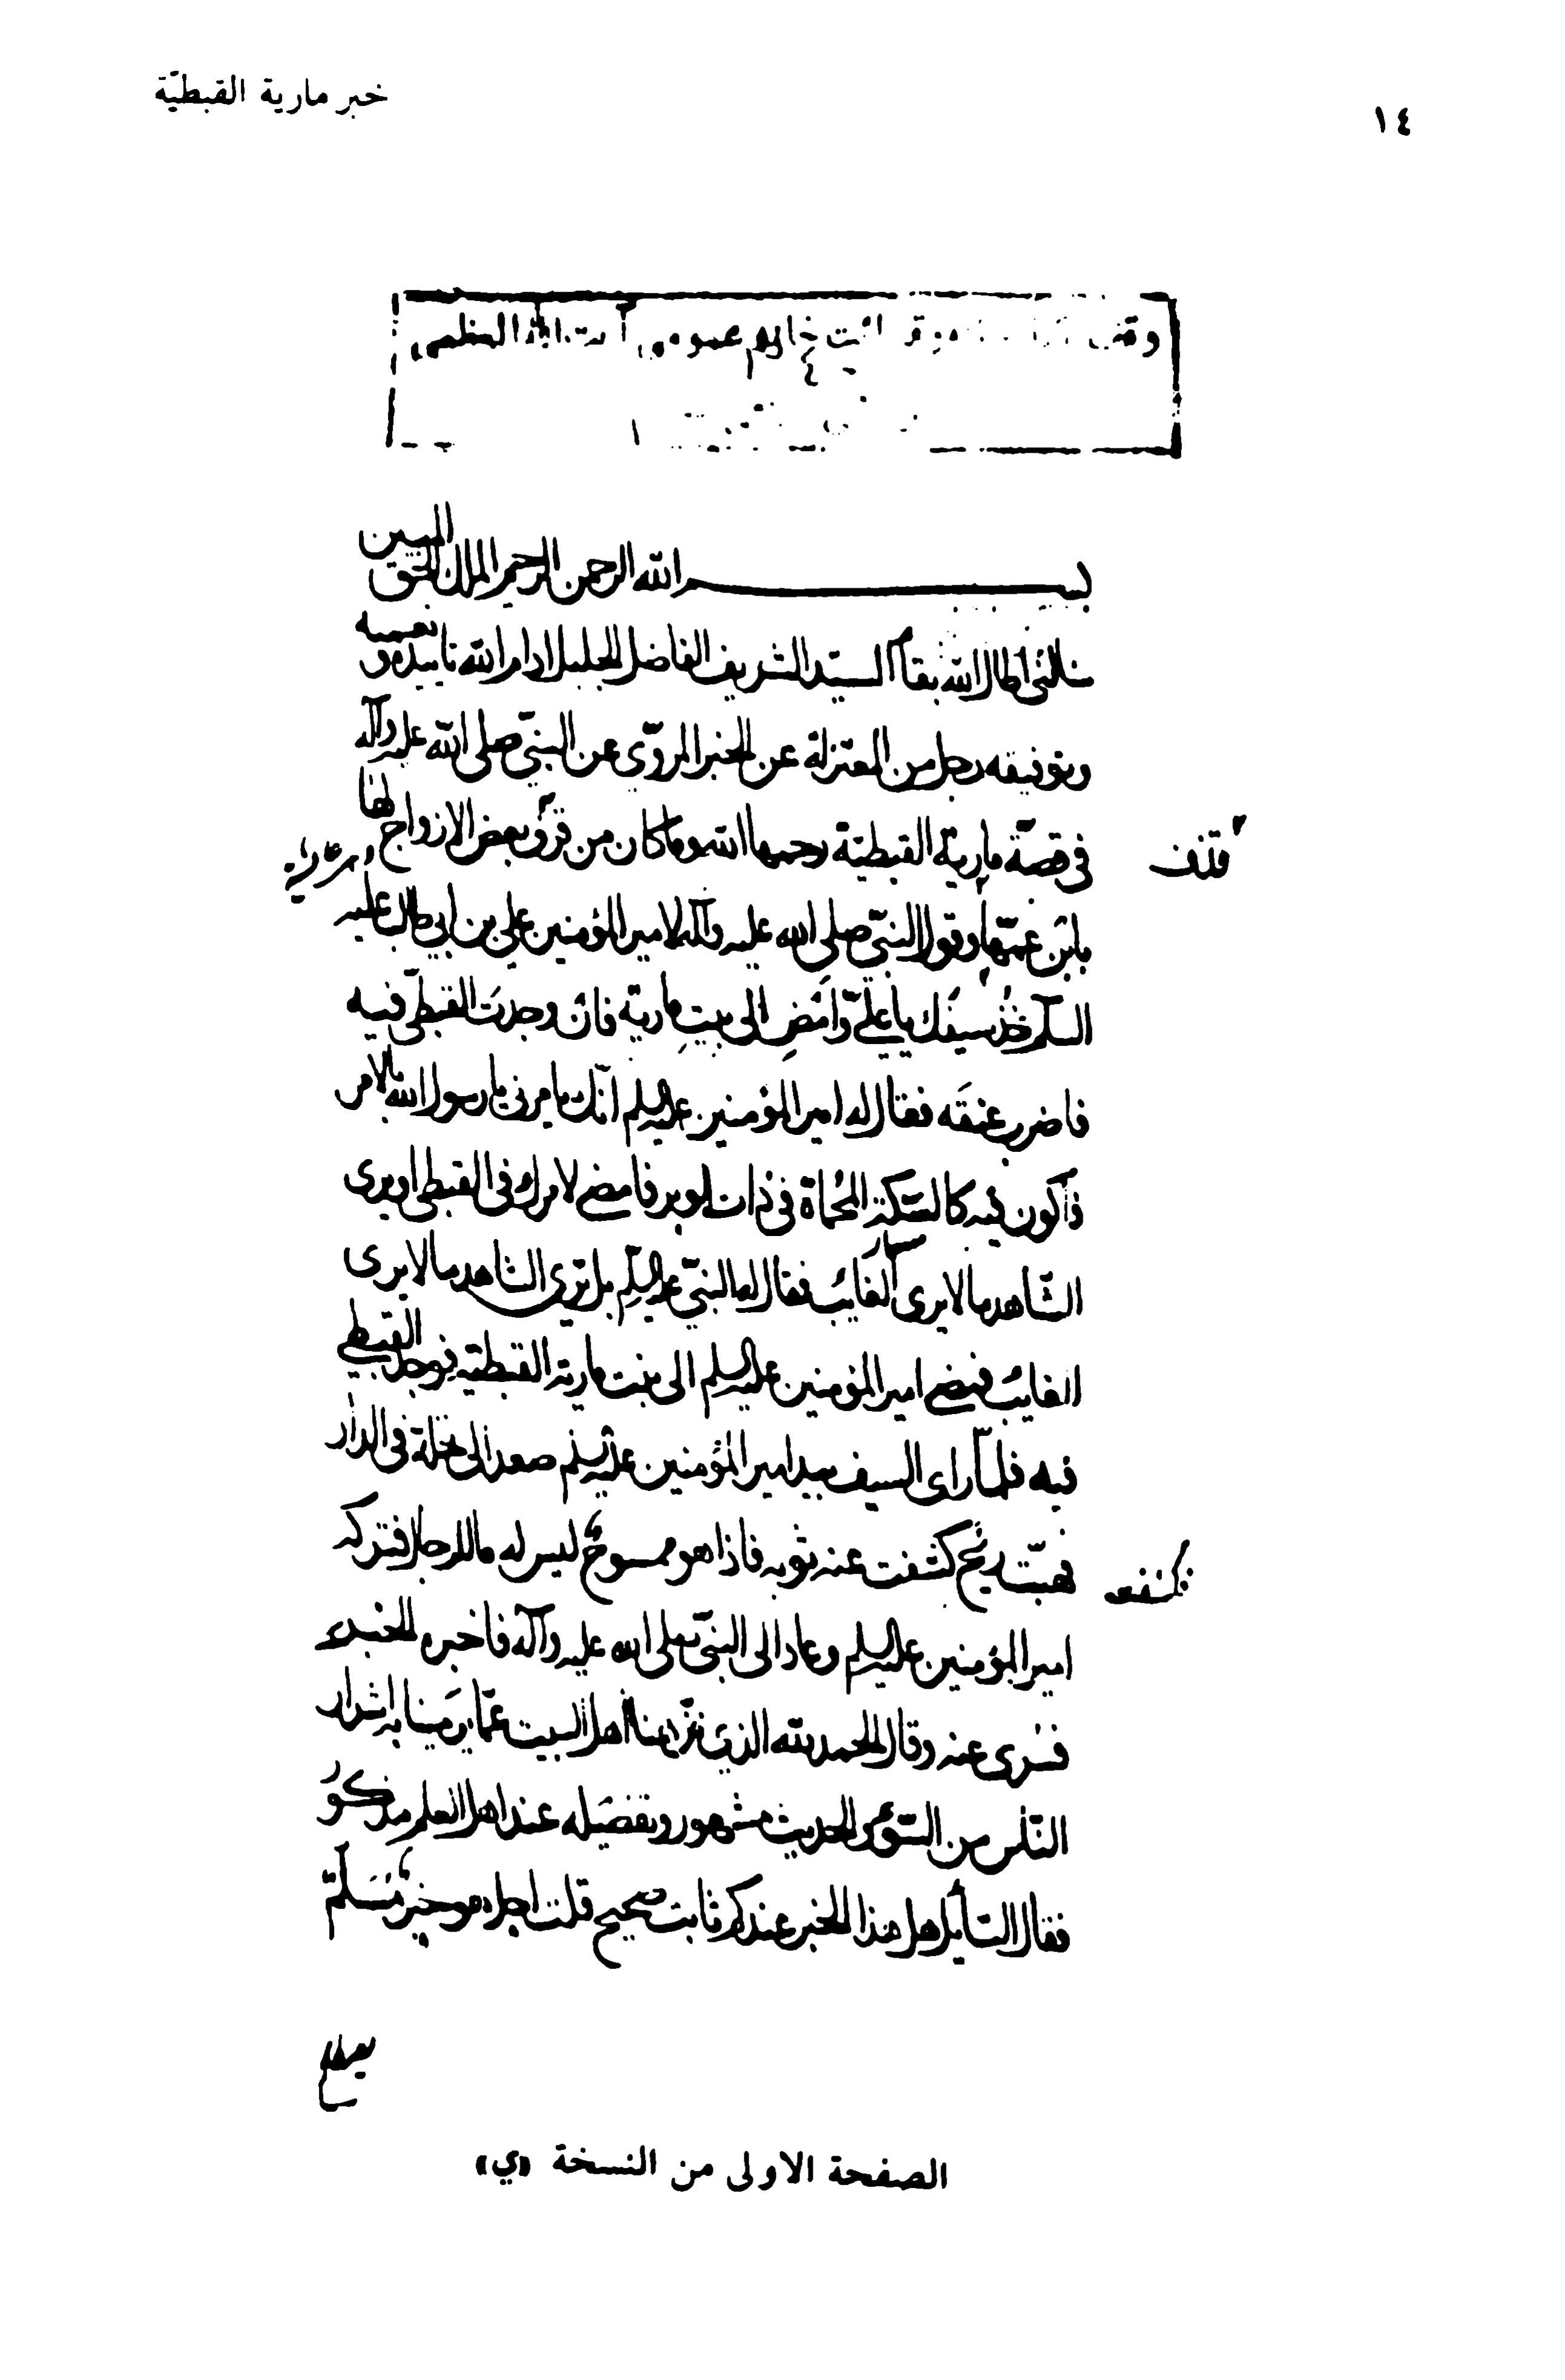 ١٤
خبر مارية القبطيّة
بسم الله الرحمن الرحيم الملك الحق المبين
سالنى اطال الله بقاء السيّد الشريف الفاضل الجليل ادام الله تاييده و نعمه
وتوفيقه رجل من المعتزلة عن الخبر المروّى عن النبىّ صلى الله عليه وآله
فى قصة مارية القبطيّة رحمها الله وما كان من قرف بعض الازواج لها
قذف
بابن عمّها وقول النبىّ صلى الله عليه وآله لامير المؤمنين على بن ابى طالب عليه
السلم خذ سيفك يا علىّ وامض الى بيت مارية فان وجدت القبطى فيه
فاضرب عنقه فقال له امير المؤمنين عليه السلم انّك تامرنى يا رسول الله بالامر
فاكون فيه كالسّكّة المحماة فى ذات الوبر فامضى لامرك فى القبطى او يرى
الشّاهد ما لا يرى الغايب فقال له النبىّ عليه السلم بل يرى الشاهد ما لا يرى
الغايب فمضى امير المؤمنين عليه السلم الى بيت مارية القبطية فوجد القبطى
فيه فلمّا راى السيف بيد امير المؤمنين عليه السلم صعد الى نخلة فى الدار
فهبّت ريح كشفت عنه ثوبه فاذا هو ممسوح ليس له ما للرجل فتركه
فكشفت
امير المؤمنين عليه السلم وعاد الى النبىّ صلى الله عليه وآله فاخبره الخبر
فسرى عنه وقال الحمد لله الذى نزّهنا اهل البيت عمّا يرمينا به اشرار
النّاس من السّوء والحديث مشهور وتفصيله عند اهل العلم مذكور
فقال السّايل هل هذا الخبر عندكم ثابت صحيح قلت اجل هو خبر مسلّم
الصفحة الاولى من النسخة «ي»